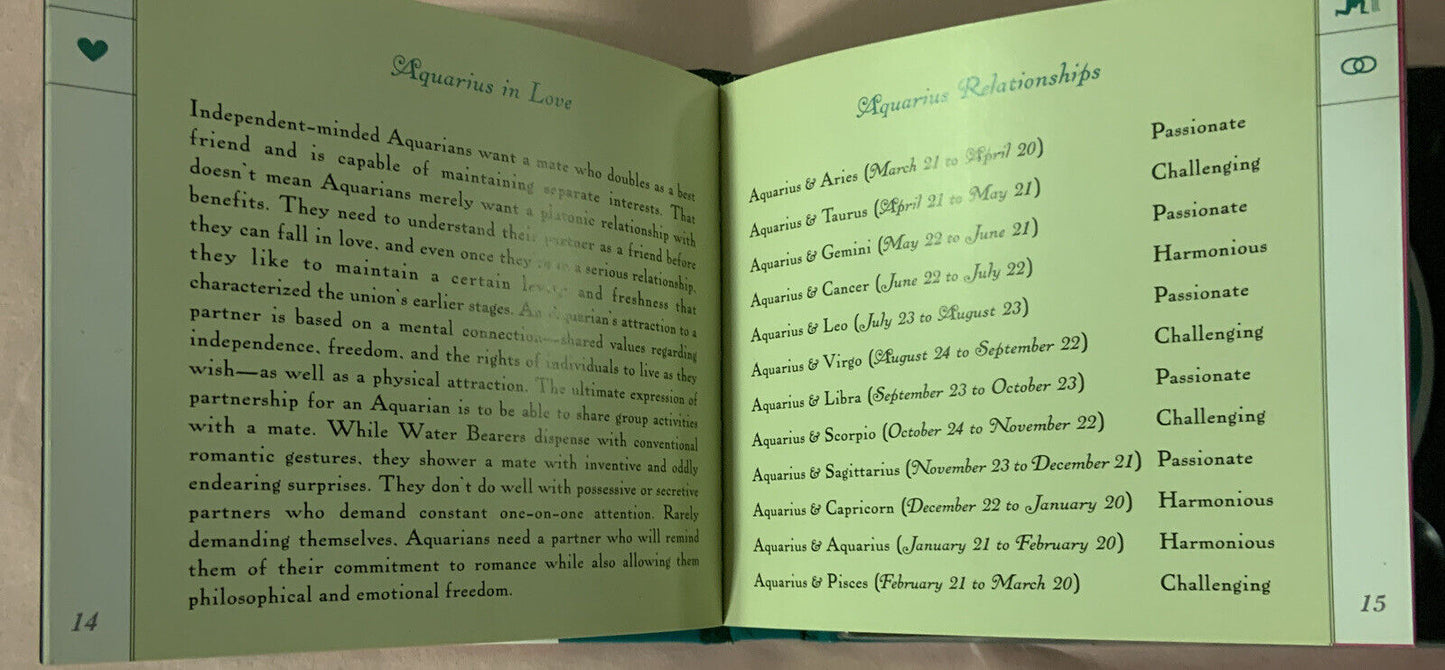 Aquarius in Love
Independent-minded Aquarians want a mate who doubles as a best
friend and is capable of maintaining separate interests. That
doesn't mean Aquarians merely want a platonic relationship with
benefits. They need to understand their partner as a friend before
they can fall in love, and even once they in a serious relationship,
they like to maintain a certain and freshness that
characterized the union's earlier stages. An Aquarian's attraction to a
partner is based on a mental connection—shared values regarding
independence, freedom, and the rights of individuals to live as they
wish—as well as a physical attraction. The ultimate expression of
partnership for an Aquarian is to be able to share group activities
with a mate. While Water Bearers dispense with conventional
romantic gestures, they shower a mate with inventive and oddly
endearing surprises. They don't do well with possessive or secretive
partners who demand constant one-on-one attention. Rarely
demanding themselves, Aquarians need a partner who will remind
them of their commitment to romance while also allowing them
philosophical and emotional freedom.
14
Aquarius Relationships
Aquarius & Aries (March 21 to April 20) Passionate
Aquarius & Taurus (April 21 to May 21) Challenging
Aquarius & Gemini (May 22 to June 21) Passionate
Aquarius & Cancer (June 22 to July 22) Harmonious
Aquarius & Leo (July 23 to August 23) Passionate
Aquarius & Virgo (August 24 to September 22) Challenging
Aquarius & Libra (September 23 to October 23) Passionate
Aquarius & Scorpio (October 24 to November 22) Challenging
Aquarius & Sagittarius (November 23 to December 21) Passionate
Aquarius & Capricorn (December 22 to January 20) Harmonious
Aquarius & Aquarius (January 21 to February 20) Harmonious
Aquarius & Pisces (February 21 to March 20) Challenging
15